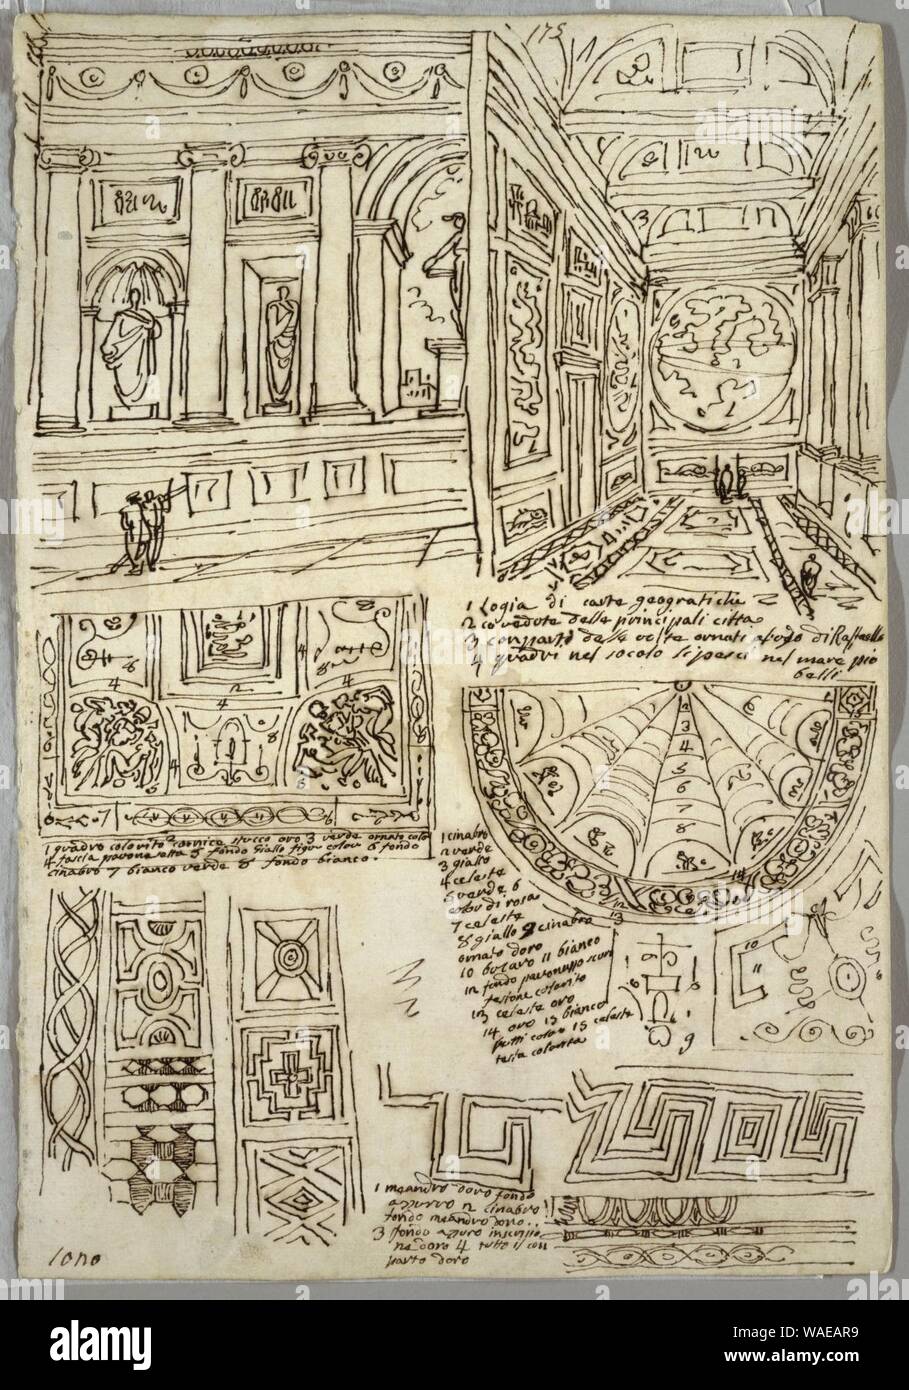 175
1 Logia di carte geografiche
2 co vedute delle principali citta
3 comparto delle volte ornati a fogo di Raffaello
4 quadri nel socolo si pesci nel mare piò
belli
1 quadro colorito 2 cornice stucco oro 3 verde ornato color
4 fascia pavonazetta 5 fondo giallo figur color 6 fondo
cinabro 7 bianco verde 8 fondo bianco.
1 cinabro
2 verde
3 giallo
4 celeste
5 verde 6
color di rosa
7 celeste
8 giallo 9 cinabro
ornato doro
10 11 bianco
12 fondo pavonazzo con
testone colorito
13 celeste oro
14 oro 15 bianco
putti color 15 celeste
testa colorita
1 meandro doro fondo
azzurro 2 cinabro
fondo meandro doro..
3 fondo azuro
ne doro 4 tutto il com
parto doro
Iono
alamy
Image ID: WAEAR9
www.alamy.com